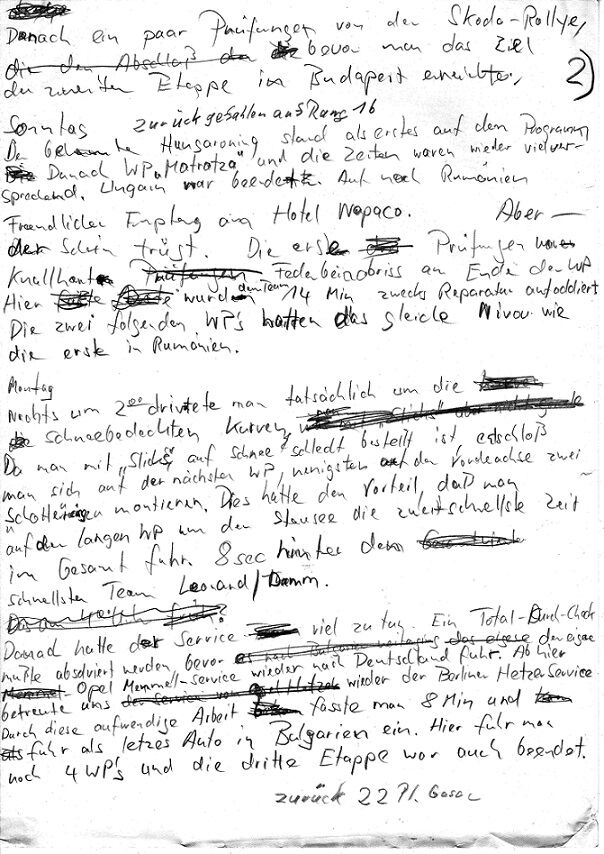 Danach ein paar Prüfungen von der Skoda-Rallye,
die den Abschluß der bevor man das Ziel
der zweiten Etappe in Budapest erreichte,
2)
Sonntag zurückgefallen auf Rang 16
Der bekannte Hungaroring stand als erstes auf dem Programm
Danach WP "Matratza" und die Zeiten waren wieder vielver-
sprechend. Ungarn war beendet. Auf nach Rumänien
Freundlicher Empfang am Hotel Napaco. Aber —
der Schein trügt. Die erste Prüfungen
Knallhart Prüfungen Federbeinabriss am Ende der WP
Hier wurden dem Team 14 Min zwecks Reparatur aufaddiert
Die zwei folgenden WP's hatten das gleiche Nivou wie
die erste in Rumänien.
Montag
Nachts um 2⁰⁰ driftete man tatsächlich um die
schneebedeckten Kurven,
Da man mit "Slicks" auf Schnee schlecht bestellt ist, entschloß
man sich auf der nächsten WP, wenigsten auf der Vorderachse zwei
Schotter montieren. Dies hatte den Vorteil, daß man
auf der langen WP um den Stausee die zweitschnellste Zeit
im Gesamt fuhr. 8 sec hinter dem
schnellsten Team Leonard/Damm.
Danach hatte der Service viel zu tun. Ein Total-Durch-Check
mußte absolviert werden, bevor der eigene
Opel Memmel-Service wieder nach Deutschland fuhr. Ab hier
betreute uns der Service von Opel Hetzer wieder der Berliner Hetzer Service
Durch diese aufwendige Arbeit fasste man 8 Min und
fuhr als letzes Auto in Bulgarien ein. Hier fuhr man
noch 4 WP's und die dritte Etappe war auch beendet.
zurück 22 Pl. Gesa